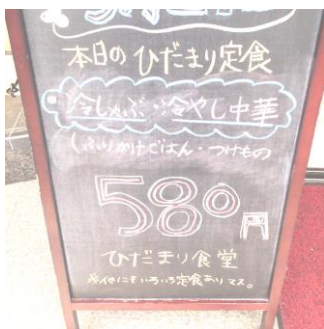 本日のひだまり定食
冷しゃぶ冷やし中華
ふりかけごはん・つけもの
580円
ひだまり食堂
※他にもいろいろ定食あります。